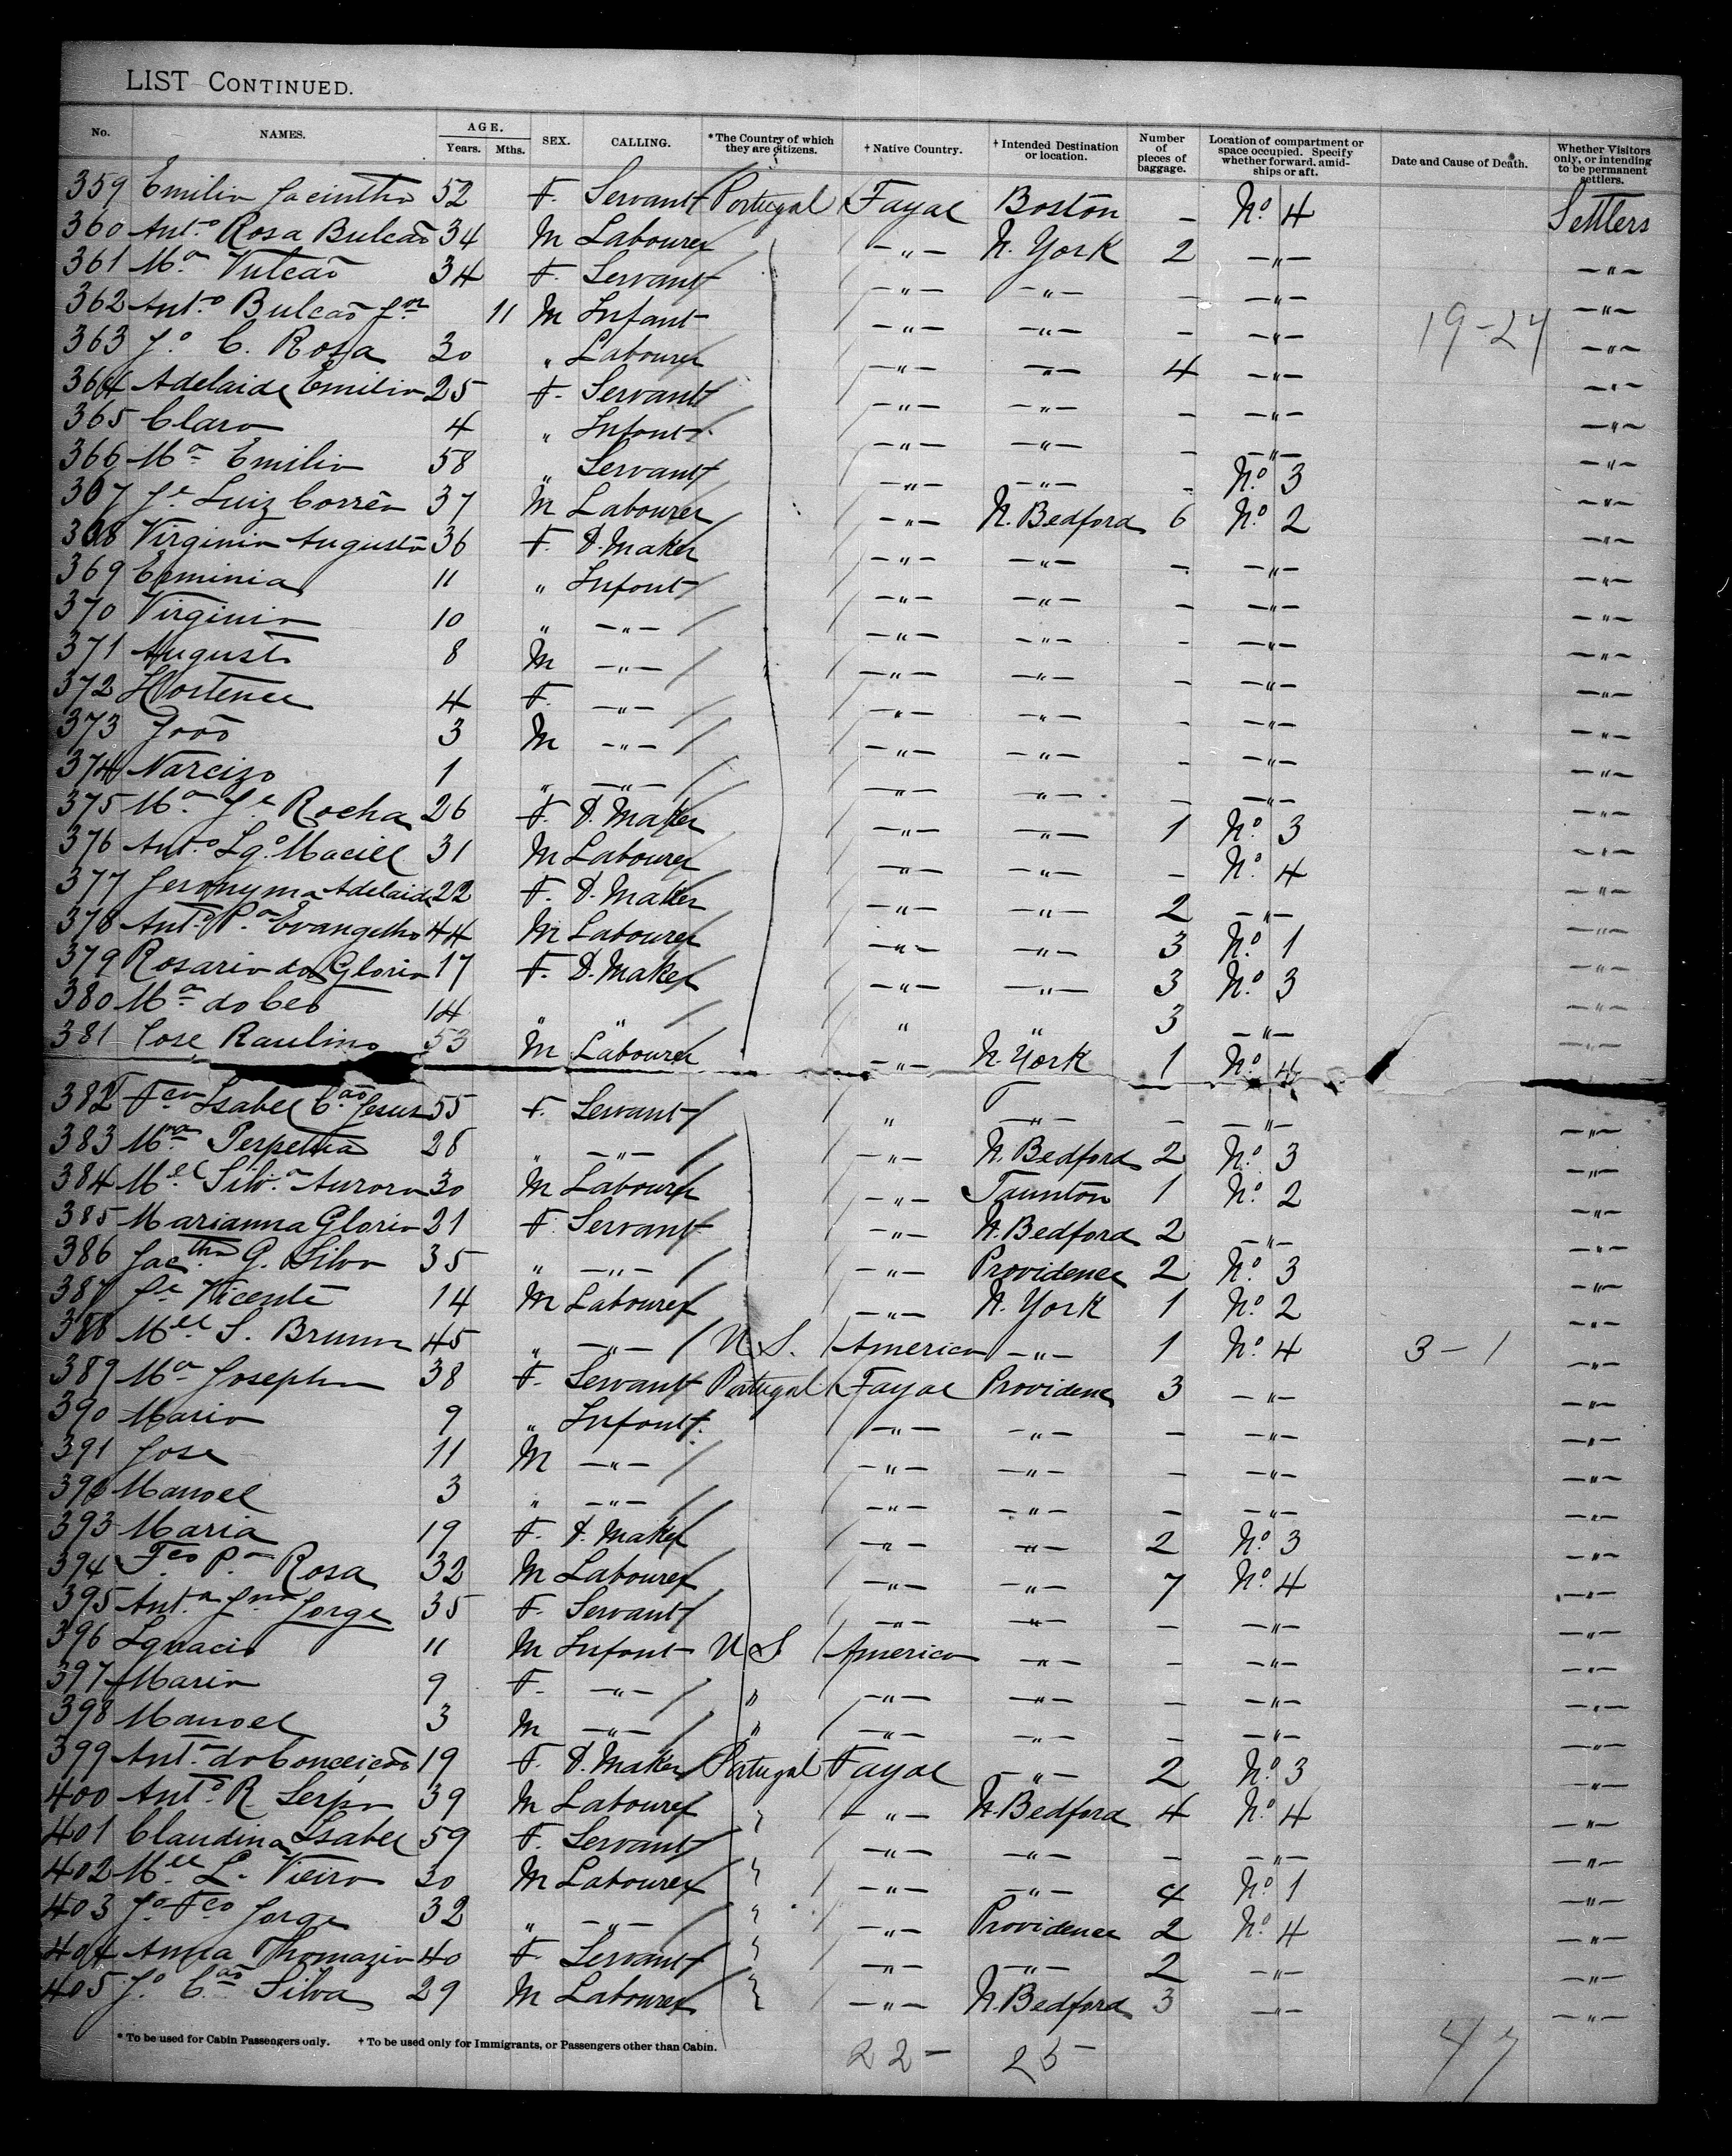 LIST CONTINUED.
No. NAMES. AGE. Years. Mths. SEX. CALLING. *The Country of which they are citizens. †Native Country. †Intended Destination or location. Number of pieces of baggage. Location of compartment or space occupied. Specify whether forward, amidships or aft. Date and Cause of Death. Whether Visitors only, or intending to be permanent settlers.
359 Emilia Jacintha 52 F. Servant Portugal Fayal Boston - No. 4 Settlers
360 Anto. Rosa Bulcaõ 34 M Labourer -"- N. York 2 -"- -"-
361 Ma. Vulcaõ 34 F. Servant -"- -"- - -"- -"-
362 Anto. Bulcaõ Jor 11 M Infant -"- -"- - -"- 19-24 -"-
363 Jo. C. Rosa 30 " Labourer -"- -"- 4 -"- -"-
364 Adelaide Emilia 25 F. Servant -"- -"- - -"- -"-
365 Clara 4 " Infant -"- -"- - -"- -"-
366 Ma. Emilia 58 " Servant -"- -"- - No. 3 -"-
367 Je. Luiz Corrêa 37 M Labourer -"- N. Bedford 6 No. 2 -"-
368 Virginia Augusta 36 F. D. Maker -"- -"- - -"- -"-
369 Erminia 11 " Infant -"- -"- - -"- -"-
370 Virginia 10 " -"- -"- -"- - -"- -"-
371 Augusto 8 M -"- -"- -"- - -"- -"-
372 Hortence 4 F. -"- -"- -"- - -"- -"-
373 Joaõ 3 M -"- -"- -"- - -"- -"-
374 Narcizo 1 " -"- -"- -"- - -"- -"-
375 Ma. Je. Rocha 26 F. D. Maker -"- -"- 1 No. 3 -"-
376 Anto. Lço. Maciel 31 M Labourer -"- -"- - No. 4 -"-
377 Jeronyma Adelaide 22 F. D. Maker -"- -"- 2 -"- -"-
378 Anto. Pa. Evangelho 44 M Labourer -"- -"- 3 No. 1 -"-
379 Rosaria da Gloria 17 F. D. Maker -"- -"- 3 No. 3 -"-
380 Ma. do Ceo 14 " " " " 3 -"- -"-
381 Jose Raulino 53 M Labourer -"- N. York 1 No. 4
382 Fca Isabel Cao. Jesus 55 F. Servant " -"- - -"- -"-
383 Mna Perpetua 28 " -"- -"- N. Bedford 2 No. 3 -"-
384 Mel Silva. Aurora 30 M Labourer -"- Taunton 1 No. 2 -"-
385 Marianna Gloria 21 F. Servant -"- N. Bedford 2 -"- -"-
386 Jactha G. Silva 35 " -"- -"- Providence 2 No. 3 -"-
387 Je. Vicente 14 M Labourer -"- N. York 1 No. 2 -"-
388 Mel S. Brum 45 " -"- U.S. America -"- 1 No. 4 3-1 -"-
389 Ma. Josepha 38 F. Servant Portugal Fayal Providence 3 -"- -"-
390 Maria 9 " Infant -"- -"- - -"- -"-
391 Jose 11 M -"- -"- -"- - -"- -"-
392 Manoel 3 " -"- -"- -"- - -"- -"-
393 Maria 19 F. D. Maker -"- -"- 2 No. 3 -"-
394 Fco Pa. Rosa 32 M Labourer -"- -"- 7 No. 4 -"-
395 Anta. Jna Jorge 35 F. Servant -"- -"- - -"- -"-
396 Ignacio 11 M Infant U S America -"- - -"- -"-
397 Maria 9 F. -"- " -"- -"- - -"- -"-
398 Manoel 3 M -"- " -"- -"- - -"- -"-
399 Anta. da Conceiçaõ 19 F. D. Maker Portugal Fayal -"- 2 No. 3 -"-
400 Anto. R. Serpa 39 M Labourer -"- N. Bedford 4 No. 4 -"-
401 Claudina Isabel 59 F. Servant -"- -"- - -"- -"-
402 Mel L. Vieira 30 M Labourer -"- -"- 4 No. 1 -"-
403 Jo. Fco Jorge 32 " -"- -"- Providence 2 No. 4 -"-
404 Anna Thomazia 40 F. Servant -"- -"- 2 -"- -"-
405 Jo. Cao. Silva 29 M Labourer -"- N. Bedford 3 -"- -"-
* To be used for Cabin Passengers only. † To be used only for Immigrants, or Passengers other than Cabin.
22- 25 47